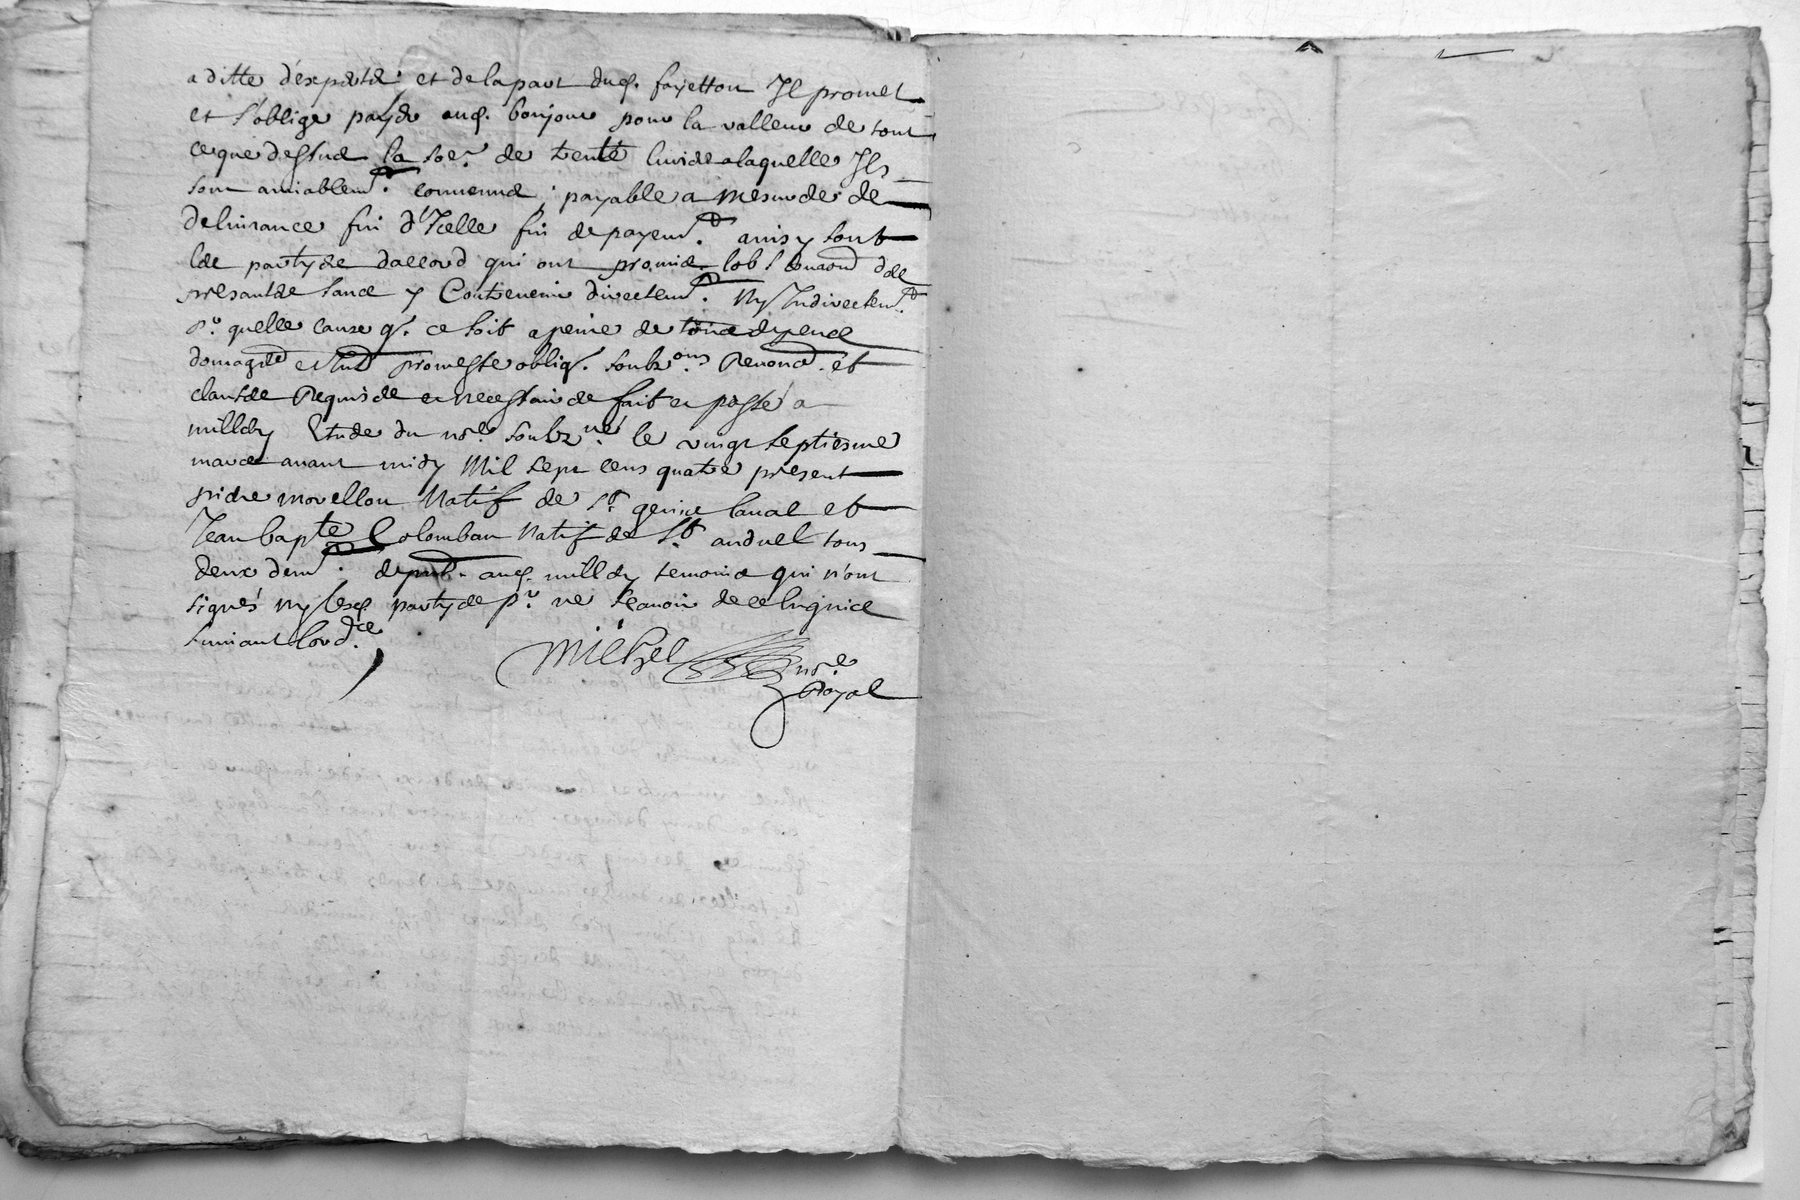 a ditte d'expertz et de la part dud. fayetton Il promet
et s'oblige payer aud. bonjour pour la valleur de tout
ce que dessus la so.e de trente livres a laquelle Ils
sont amiablem.t convenus, payable a mesure de
delivrance fin d'Icelle fin de payem.t ainsy sont
les partyes d'accord qui ont promis lobs
presantes sans y Contrevenir directem.t Ny Indirectem.t
p.r quelle cause q. ce soit a peine de tous depens
domages et sub promesse oblig. soubz.ons Renond. et
clauses Requises et necessaires fait et passé a
millery Etude du no.re soubz.né le vingt septiesme
mars avant midy Mil sept cens quatre present
pierre morellon Natif de S.t genis laval et
Jean bapte Colomban Natif de S.t andeol tous
deux dem.t de pnt. aud. millery temoins qui n'ont
signés ny lesd. partyes p.r ne scavoir de ce Enquis
suivant l'ord.ce
Michel no.re
Royal